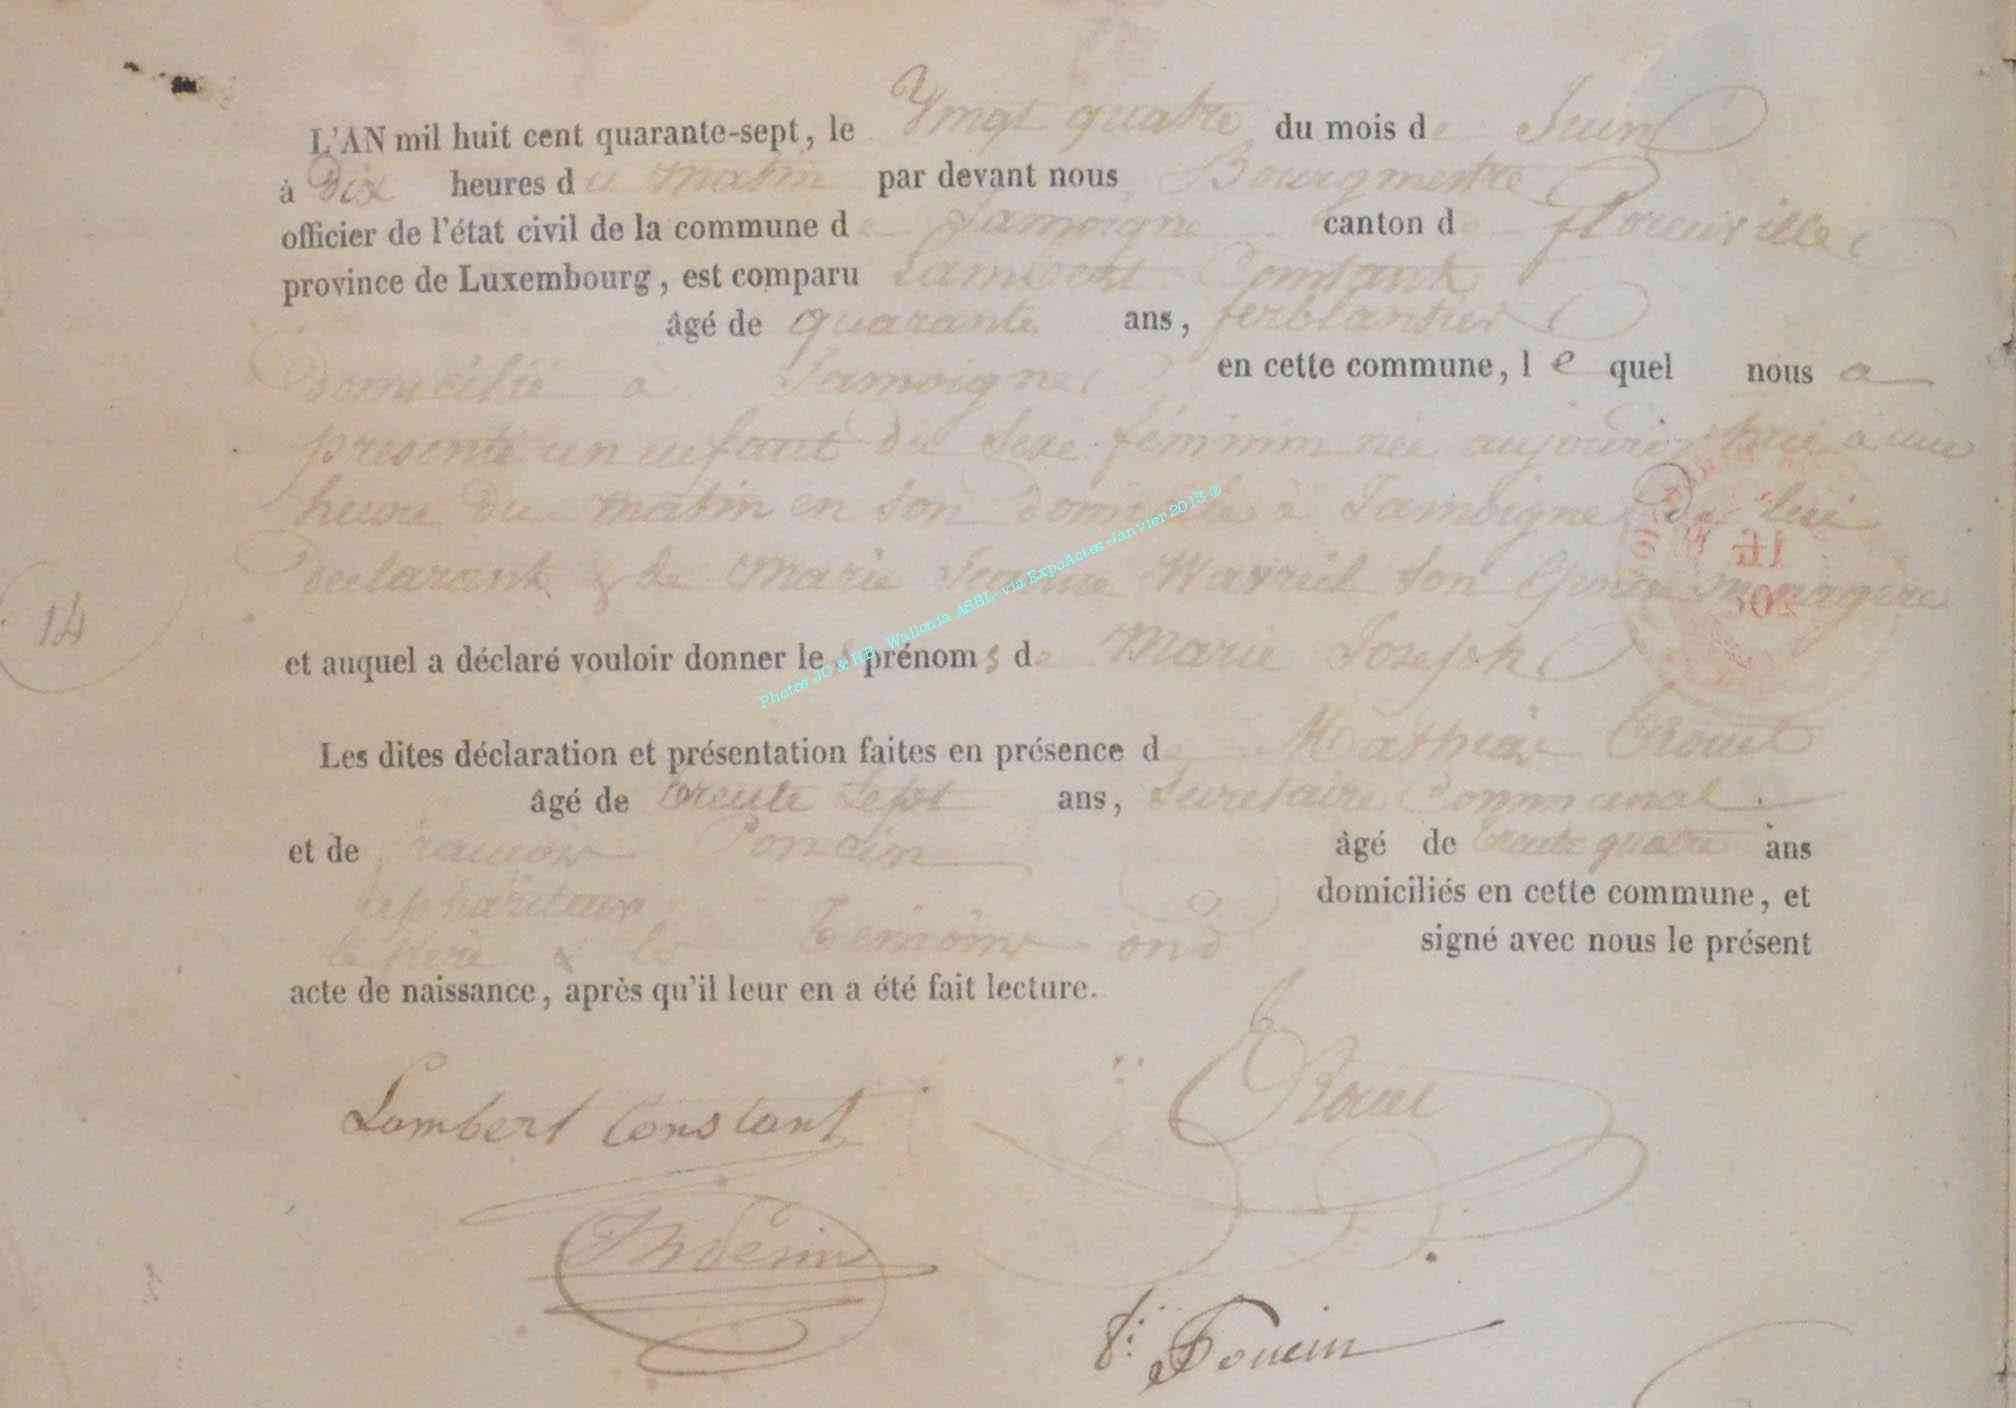 L'AN mil huit cent quarante-sept, le Vingt quatre du mois de Juin
à Dix heures du matin par devant nous Bourgmestre
officier de l'état civil de la commune de Jamoigne canton de florenville
province de Luxembourg, est comparu Lambert Constant
âgé de quarante ans, ferblantier
domicilié à Jamoigne en cette commune, le quel nous a
présenté un enfant du sexe féminin née aujourd'hui a une
heure du matin en son domicile à Jamoigne de lui
declarant & de Marie son Epouse menagère
14
et auquel a déclaré vouloir donner les prénoms de Marie Joseph
Les dites déclaration et présentation faites en présence de Mathias
âgé de trente sept ans, Secretaire Communal
et de Poncin âgé de trente quatre ans
domiciliés en cette commune, et
le Père & les témoins ont signé avec nous le présent
acte de naissance, après qu'il leur en a été fait lecture.
Lambert Constant
Poncin
Photos JC & RB, Wallonia ASBL, via ExpoActes-Janvier 2013 ®